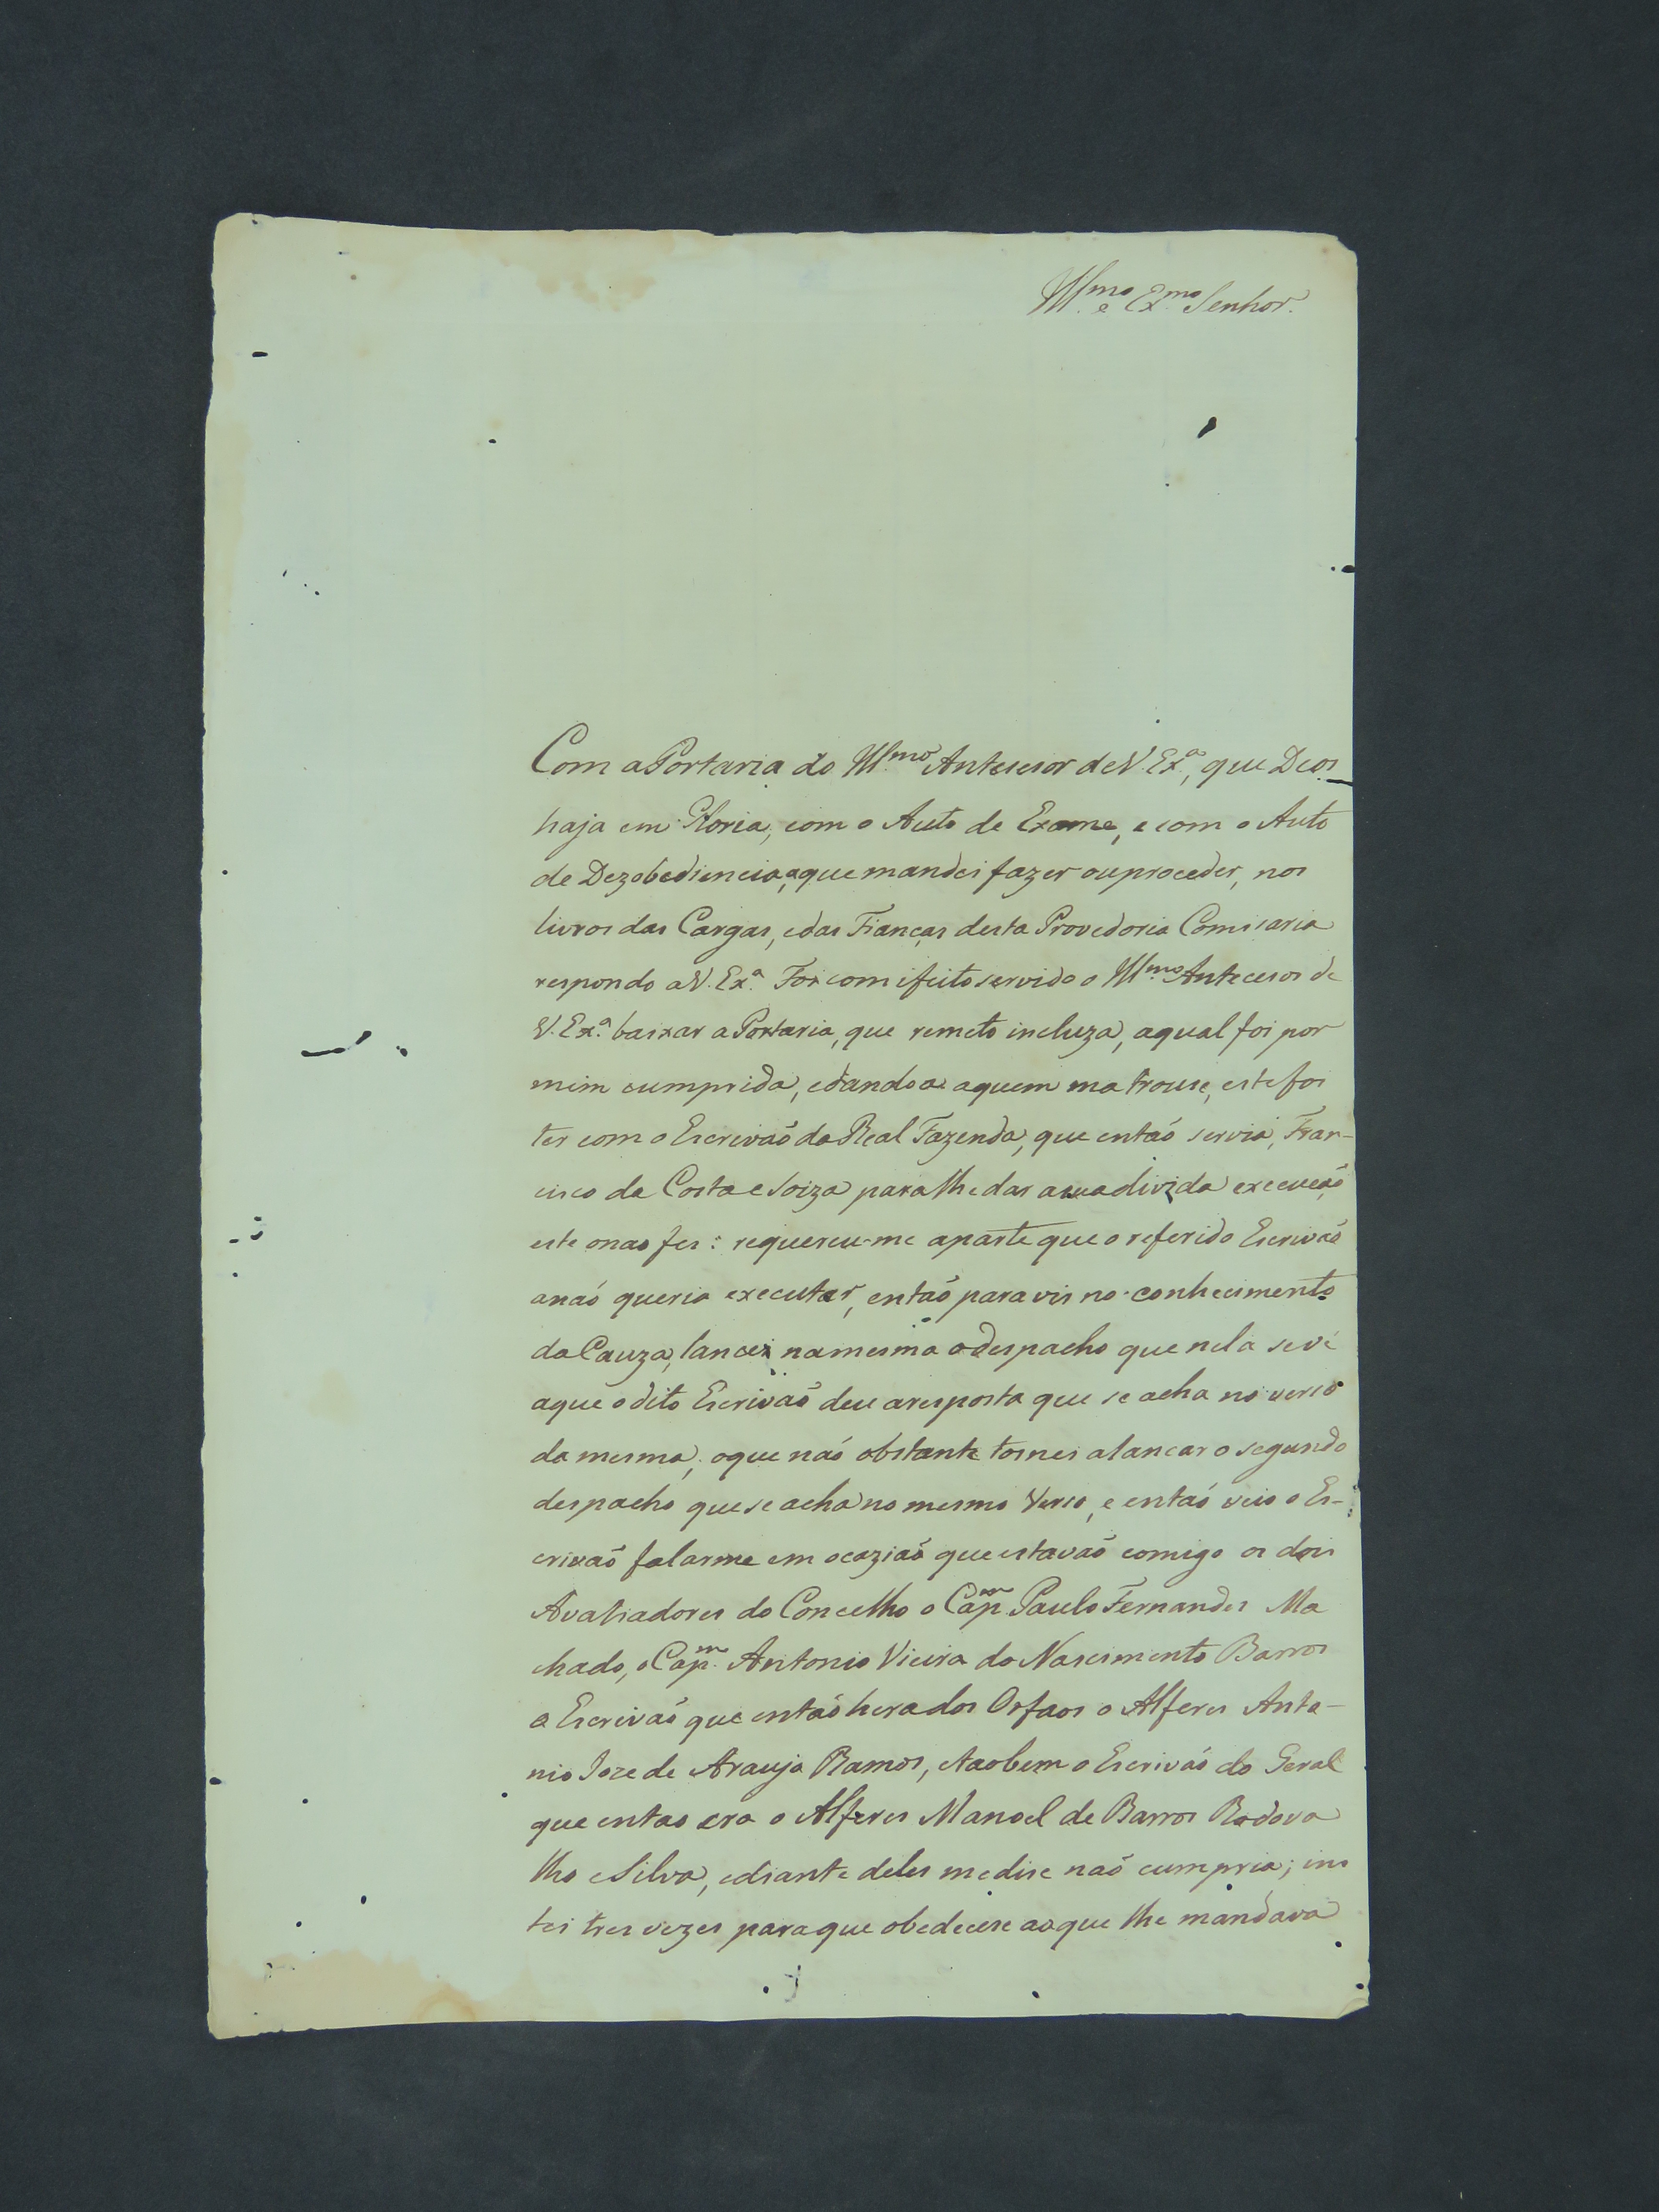 Ill.mo e Ex.mo Senhor.
Com a Portaria do Ill.mo Antesesor de V. Ex.a, que Deos
haja em Gloria, com o Auto de Exame, e com o Auto
de Dezobediencia, aque mandei fazer ouproceder, nos
livros das Cargas, edas Fianças desta Provedoria Comisaria
respondo aV. Ex.a Foi com ifeito servido o Ill.mo Antecesor de
V. Ex.a baixar a Portaria, que remeto incluza, aqual foi por
mim cumprida, edandoa aquem ma trouse, este foi
ter com o Escrivaõ da Real Fazenda, que entaõ servia, Fran-
cisco da Costa e Soiza para lhe dar a sua divida execucaõ
este onao fes: requereu-me aparte que o referido Escrivaõ
anaõ queria executar, entaõ para vir no conhecimento
da Cauza, lancei namesma odespacho que nela se vê
aque odito Escrivaõ deu aresposta que se acha no verso
da mesma, oque naõ obstante tornei alancar o segundo
despacho que se acha no mesmo verso, e entaõ veio o Es-
crivaõ falarme em ocaziaõ que estavaõ comigo os dois
Avaliadores do Concelho o Cap.m Paulo Fernandes Ma
chado, o Cap.m Antonio Vieira do Nascimento Barros
o Escrivaõ que entaõ hera dos Orfaos o Alferes Anto-
nio Joze de Araujo Ramos, etaobem o Escrivaõ do Geral
que entao era o Alferes Manoel de Barros Rodova
lho e Silva, ediante deles medise naõ cumpria; ins
tei tres vezes paraque obedecese aoque lhe mandava